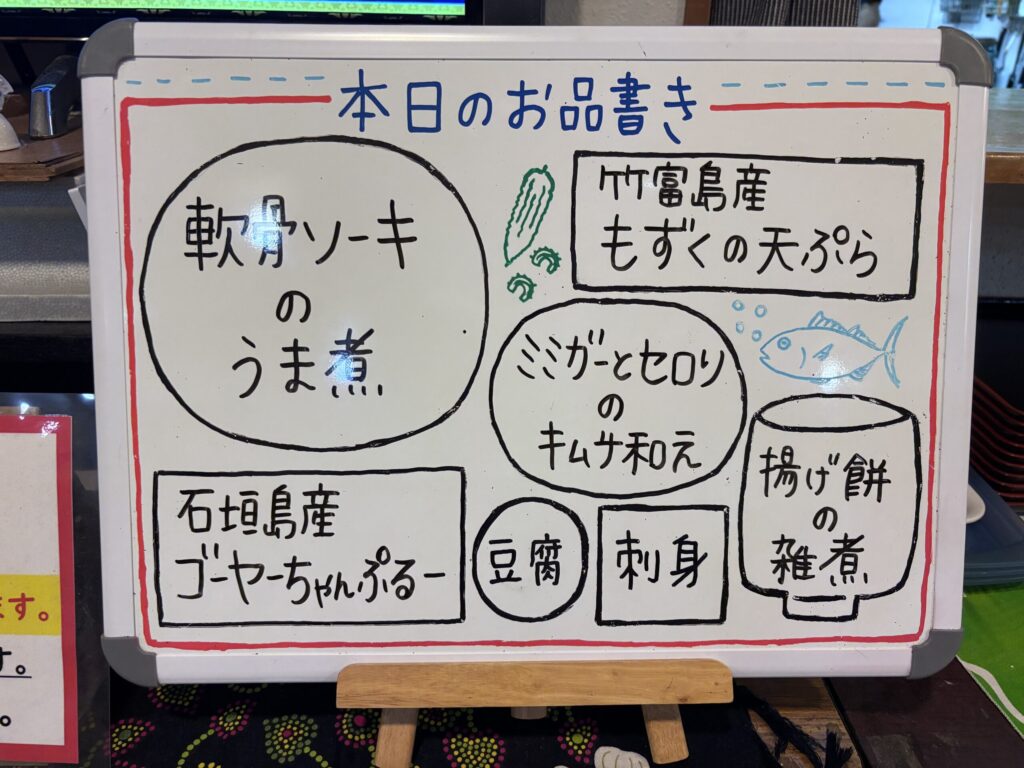 本日のお品書き
軟骨ソーキ
の
うま煮
竹富島産
もずくの天ぷら
ミミガーとセロリ
の
キムサ和え
石垣島産
ゴーヤーちゃんぷるー
豆腐
刺身
揚げ餅
の
雑煮
ます。
す。
。